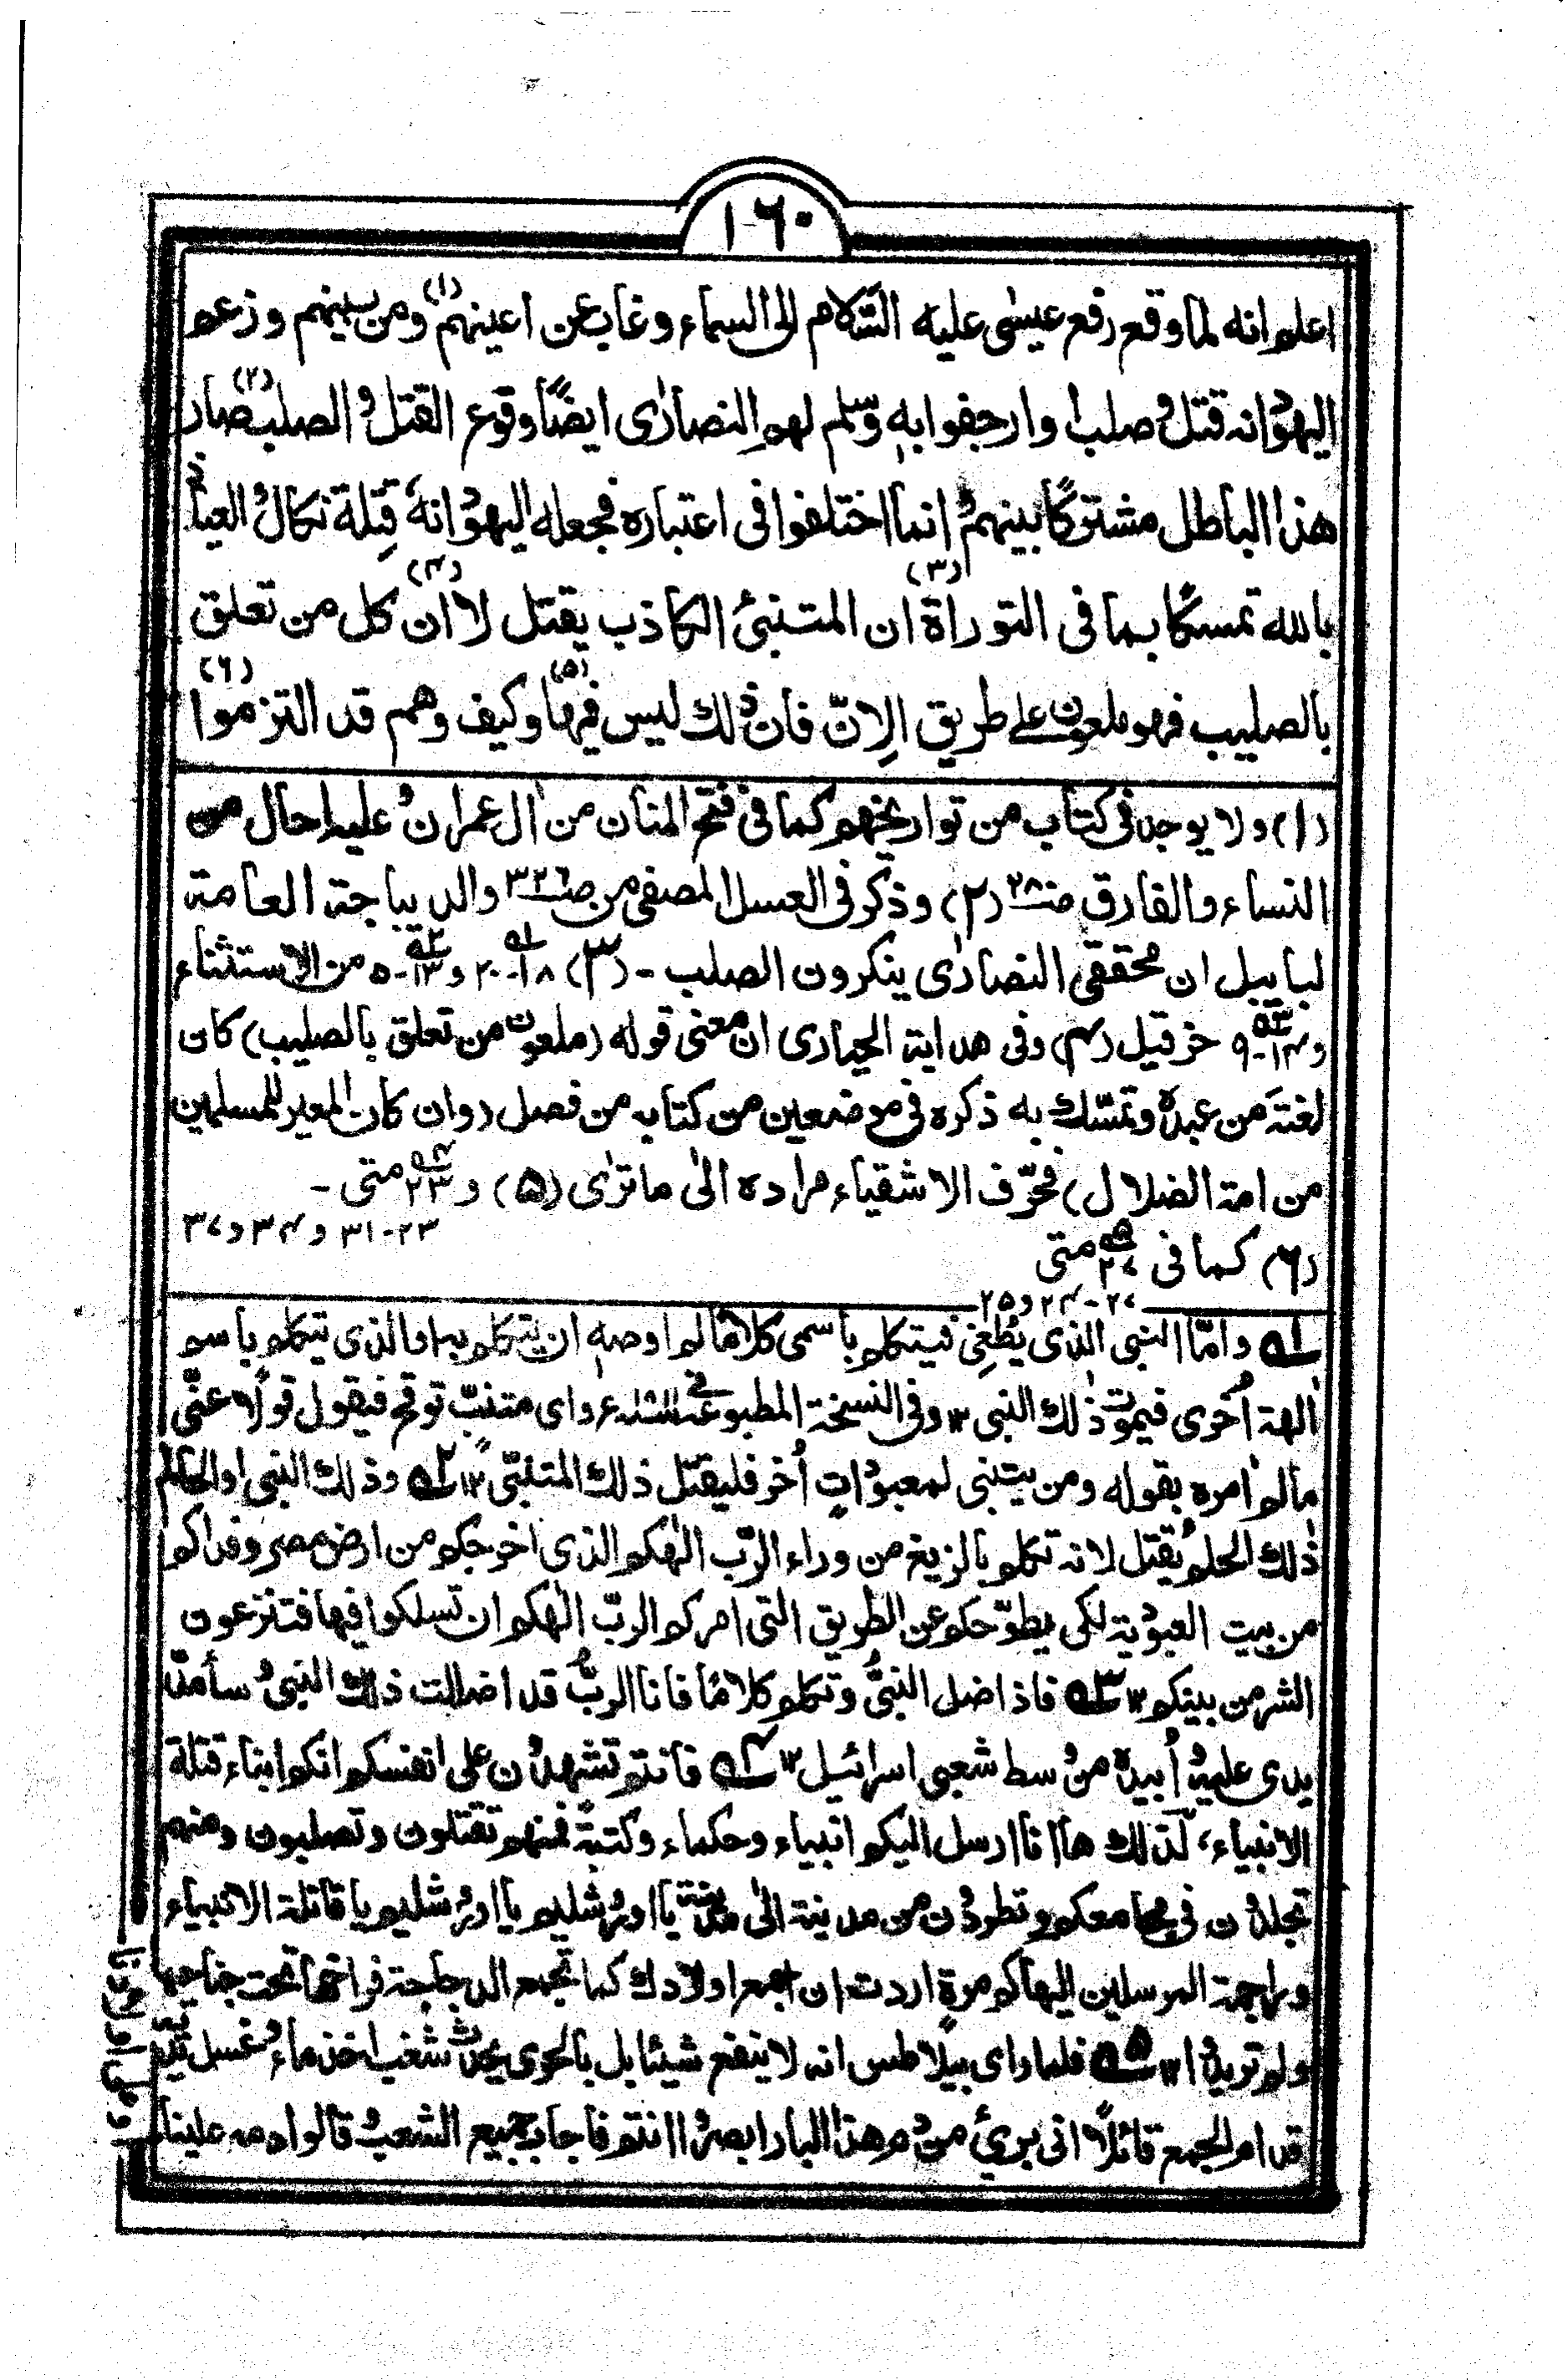 ١٦٠
اعلم انه لما وقع رفع عيسٰى عليه السّلام الى السماء وغاب عن اعينهم (١) ومن بينهم وزعم
اليهود انه قتل و صلب وارجفوا به وسلم لهم النصارٰى ايضًا وقوع القتل و الصلب (٢) صار
هذا الباطل مشتركًا بينهم و انما اختلفوا فى اعتباره فجعله اليهود انهٗ قِتلة نكال و العياذ
بالله تمسكًا بما فى التوراة (٣) ان المتنبئ الكاذب يقتل لا ان (٤) كل من تعلق
بالصليب فهو ملعون على طريق الاِنّ فان ذلك ليس فيها (٥) وكيف وهم قد التزموا (٦)
(١) ولا يوجد فى كتاب من تواريخهم كما فى فتح المنان من اٰل عمران و عليه احال من
النساء والفارق ص٢٨ (٢) وذكر فى العسل المصفى من ص٣٢٦ والديباجة العامة
لبايبل ان محققى النصارٰى ينكرون الصلب - (٣) ١٨-٢٠ و ١٣-٥ من الاستثناء
و ١٤-٩ حزقيل (٤) وفى هداية الحيارى ان معنى قوله (ملعون من تعلق بالصليب) كان
لعنة من عبده وتمسّك به ذكره فى موضعين من كتابه من فصل (وان كان المعير للمسلمين
من امة الضلال) فحرّف الاشقياء مراده الىٰ ما ترٰى (٥) و ٢٣ متى -
٢٣-٣١ و ٣٤ و ٣٧
(٦) كما فى ٢٧ متى
٢٧-٢٤ و ٢٥
له١ وامّا النبى الذى يُطغِى فيتكلم باسمى كلامًا لم اوصه ان يتكلم به او الذى يتكلم باسم
اٰلهة اُخرى فيموت ذٰلك النبى ١٢ وفى النسخة المطبوعة فى واى متنبّ توقح فيقول قولًا عنّى
مالم اٰمره بقوله ومن يتنبى لمعبودات اُخر فليقتل ذلك المتنبّى ١٢ له٢ وذلك النبى او الحالم
ذٰلك الحلم يُقتل لانه تكلم بالزيغ من وراء الرّب الٰهكم الذى اخرجكم من ارض مصر وفداكم
من بيت العبودية لكى يطوّحكم عن الطريق التى امركم الربّ الٰهكم ان تسلكوا فيها فتنزعون
الشر من بينكم ١٢ له٣ فاذ اضل النبىُّ وتكلم كلامًا فانا الربُّ قد اضللت ذلك النبى و سأمدّ
يدى عليه و اُبيده من وسط شعبى اسرائيل ١٢ له٤ فانتم تشهدون على انفسكم انكم ابناء قتلة
الانبياء، لذلك ها انا ارسل اليكم انبياء وحكماء وكتبةً فمنهم تقتلون وتصلبون ومنهم
تجلدون فى مجامعكم وتطردون من مدينة الىٰ مدينة يا اورشليم يا اورشليم يا قاتلة الانبياء
وراجمة المرسلين اليها كم مرةٍ اردت ان اجمع اولادك كما تجمع الدجاجة فراخها تحت جناحيها
ولم تريدوا ١٢ له٥ فلما راى بيلاطس انه لا ينفع شيئا بل بالحرى يحدث شغب اخذ ماء و غسل يديه
قدام الجمع قائلًا انى برئ من دم هذا البار ابصروا انتم فاجاب جميع الشعب و قالوا دمه علينا
وعلى اولادنا